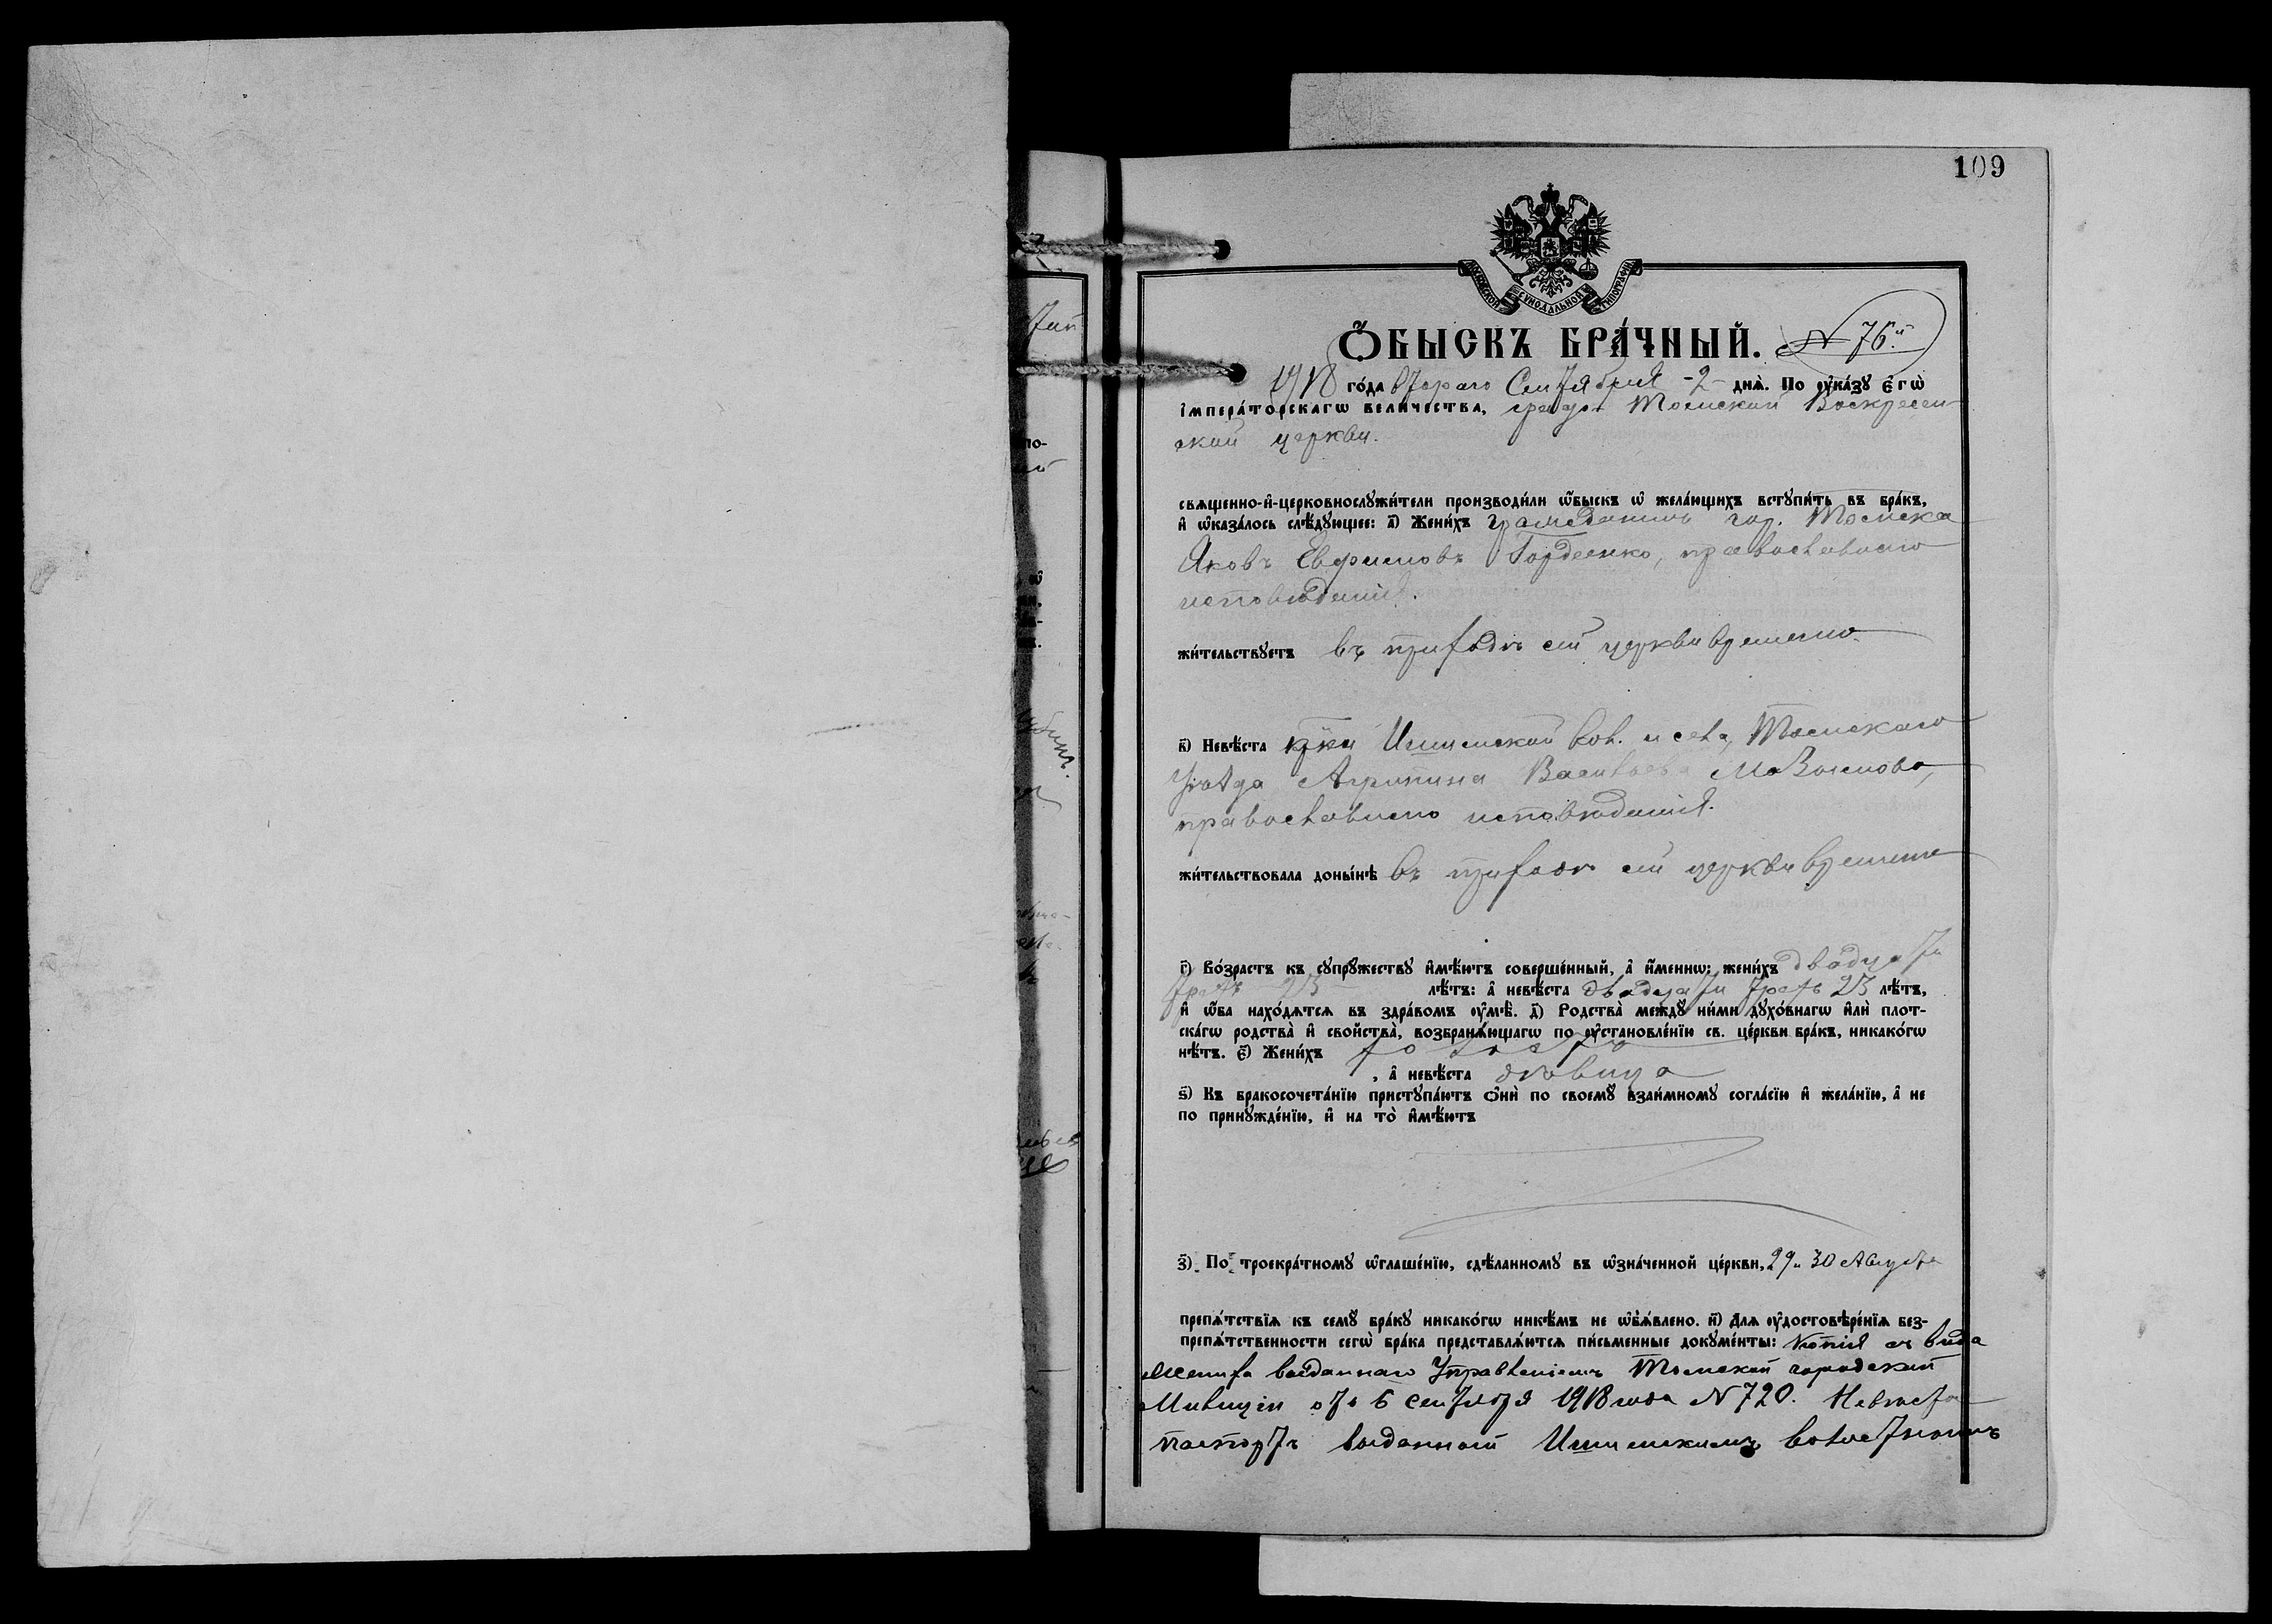 109
МОСКОВСКОЙ СУНОДАЛЬНОЙ ТИПОГРАФІИ
Ѻ҆БЫСКЪ БРА́ЧНЫЙ. N 76й
1918 го́да втораго Сентября -2- днѧ̀. По ᲂу҆ка́зꙋ є҆гѡ̀
і҆мпера́торскагѡ вели́чества, градо- Томской Воскресен-
ской церкви.
свѧщенно-и҆-церковнослꙋжи́тели производи́ли ѡ҆́быскъ ѡ҆ жела́ющихъ встꙋпи́ть въ бра́къ,
и҆ ѡ҆каза́лось слѣ́дꙋющее: а҃) Жени́хъ гражданинъ гор. Томска
Яковъ Евфимовъ Гордеенко, православнаго
исповѣданія.
жи́тельствꙋетъ въ приходѣ сей церкви временно.
в҃) Невѣ́ста кр-ка Ишимской вол. и села, Томскаго
уѣзда Агрипина Васильева
православнаго исповѣданія.
жи́тельствовала доны́нѣ въ приходѣ сей церкви временно
г҃) Во́зрастъ къ сꙋпрꙋ́жествꙋ и҆мѣ́ютъ соверше́нный, а҆ и҆́меннѡ: жени́хъ двадцати
трехъ 23 лѣ́тъ: а҆ невѣ́ста двадцати трехъ 23 лѣ́тъ,
и҆ ѡ҆́ба нахо́дѧтсѧ въ здра́вомъ ᲂу҆мѣ̀. д҃) Родства̀ междꙋ̀ ни́ми дꙋхо́внагѡ и҆лѝ плот-
ска́гѡ родства̀ и҆ сво́йства̀, возбранѧ́ющагѡ по ᲂу҆становле́нїю св. це́ркви бра́къ, никако́гѡ
нѣ́тъ. є҃) Жени́хъ холостъ
, а҆ невѣ́ста дѣвица
ѕ҃) Къ бракосочета́нїю пристꙋпа́ютъ ѻ҆нѝ по своемꙋ̀ взаи́мномꙋ согла́сїю и҆ жела́нїю, а҆ не
по принꙋжде́нїю, и҆ на то̀ и҆мѣ́ютъ
з҃) По троекра́тномꙋ ѡ҆глаше́нїю, сдѣ́ланномꙋ въ ѡ҆зна́ченной це́ркви, 29 и 30 Августа
препѧ́тствїѧ къ семꙋ̀ бра́кꙋ никако́гѡ никѣ́мъ не ѡ҆б̾ѧ́влено. и҃) Длѧ ᲂу҆достовѣре́нїѧ без-
препѧ́тственности сегѡ̀ бра́ка представлѧ́ютсѧ пи́сьменные докꙋме́нты: копія съ вида
жениха выданнаго Управленіемъ Томской городской
Милиціи отъ 6 сентября 1918 года N 720. Невѣста
паспортъ выданный Ишимскимъ волостнымъ